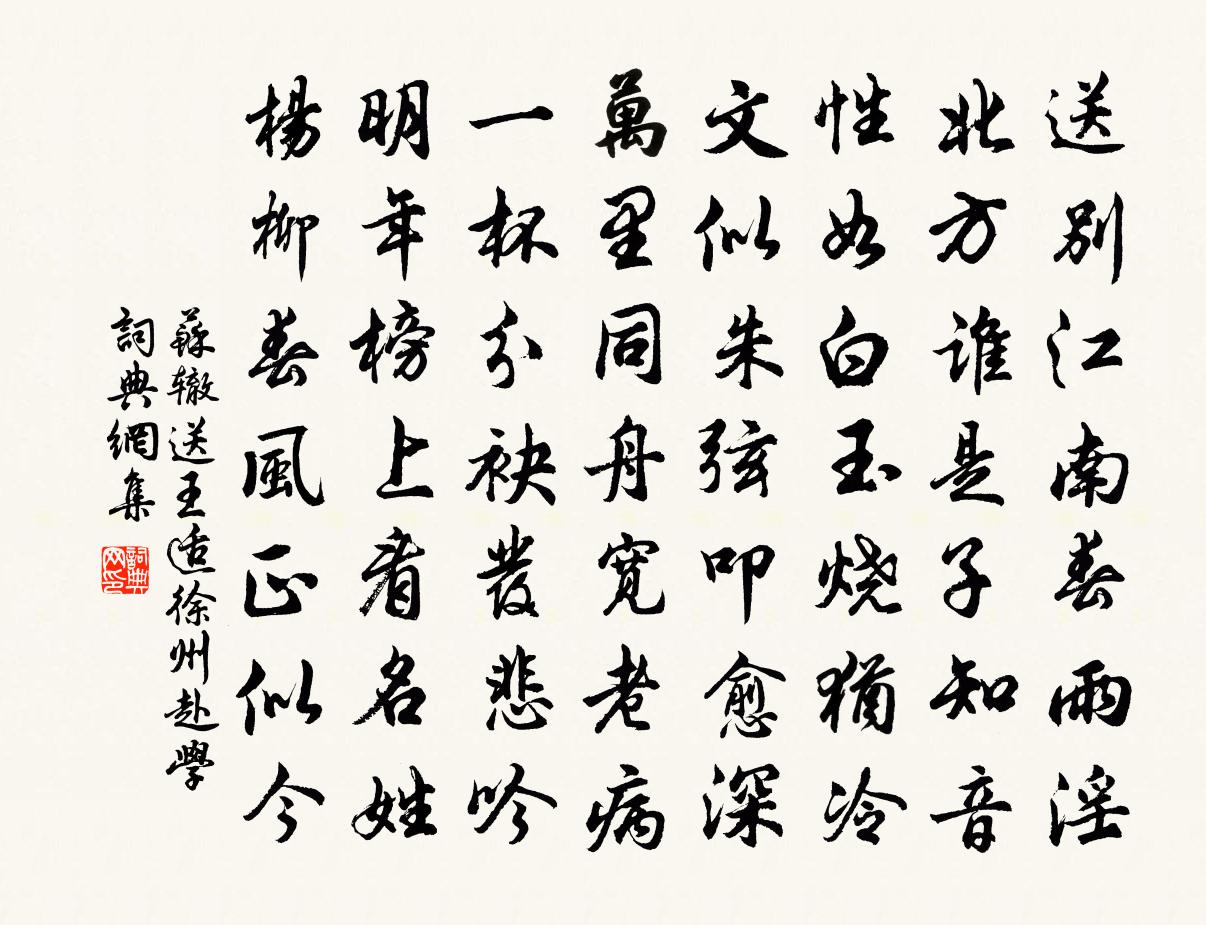 送別江南春雨淫
北方誰是子知音
性如白玉燒猶冷
文似朱弦叩愈深
萬里同舟寬老病
一杯分袂發悲吟
明年榜上看名姓
楊柳春風正似今
蘇轍送王适徐州赴學
詞典網集
詞典网印